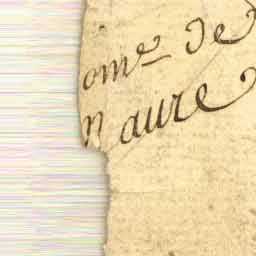 ome De
n aure